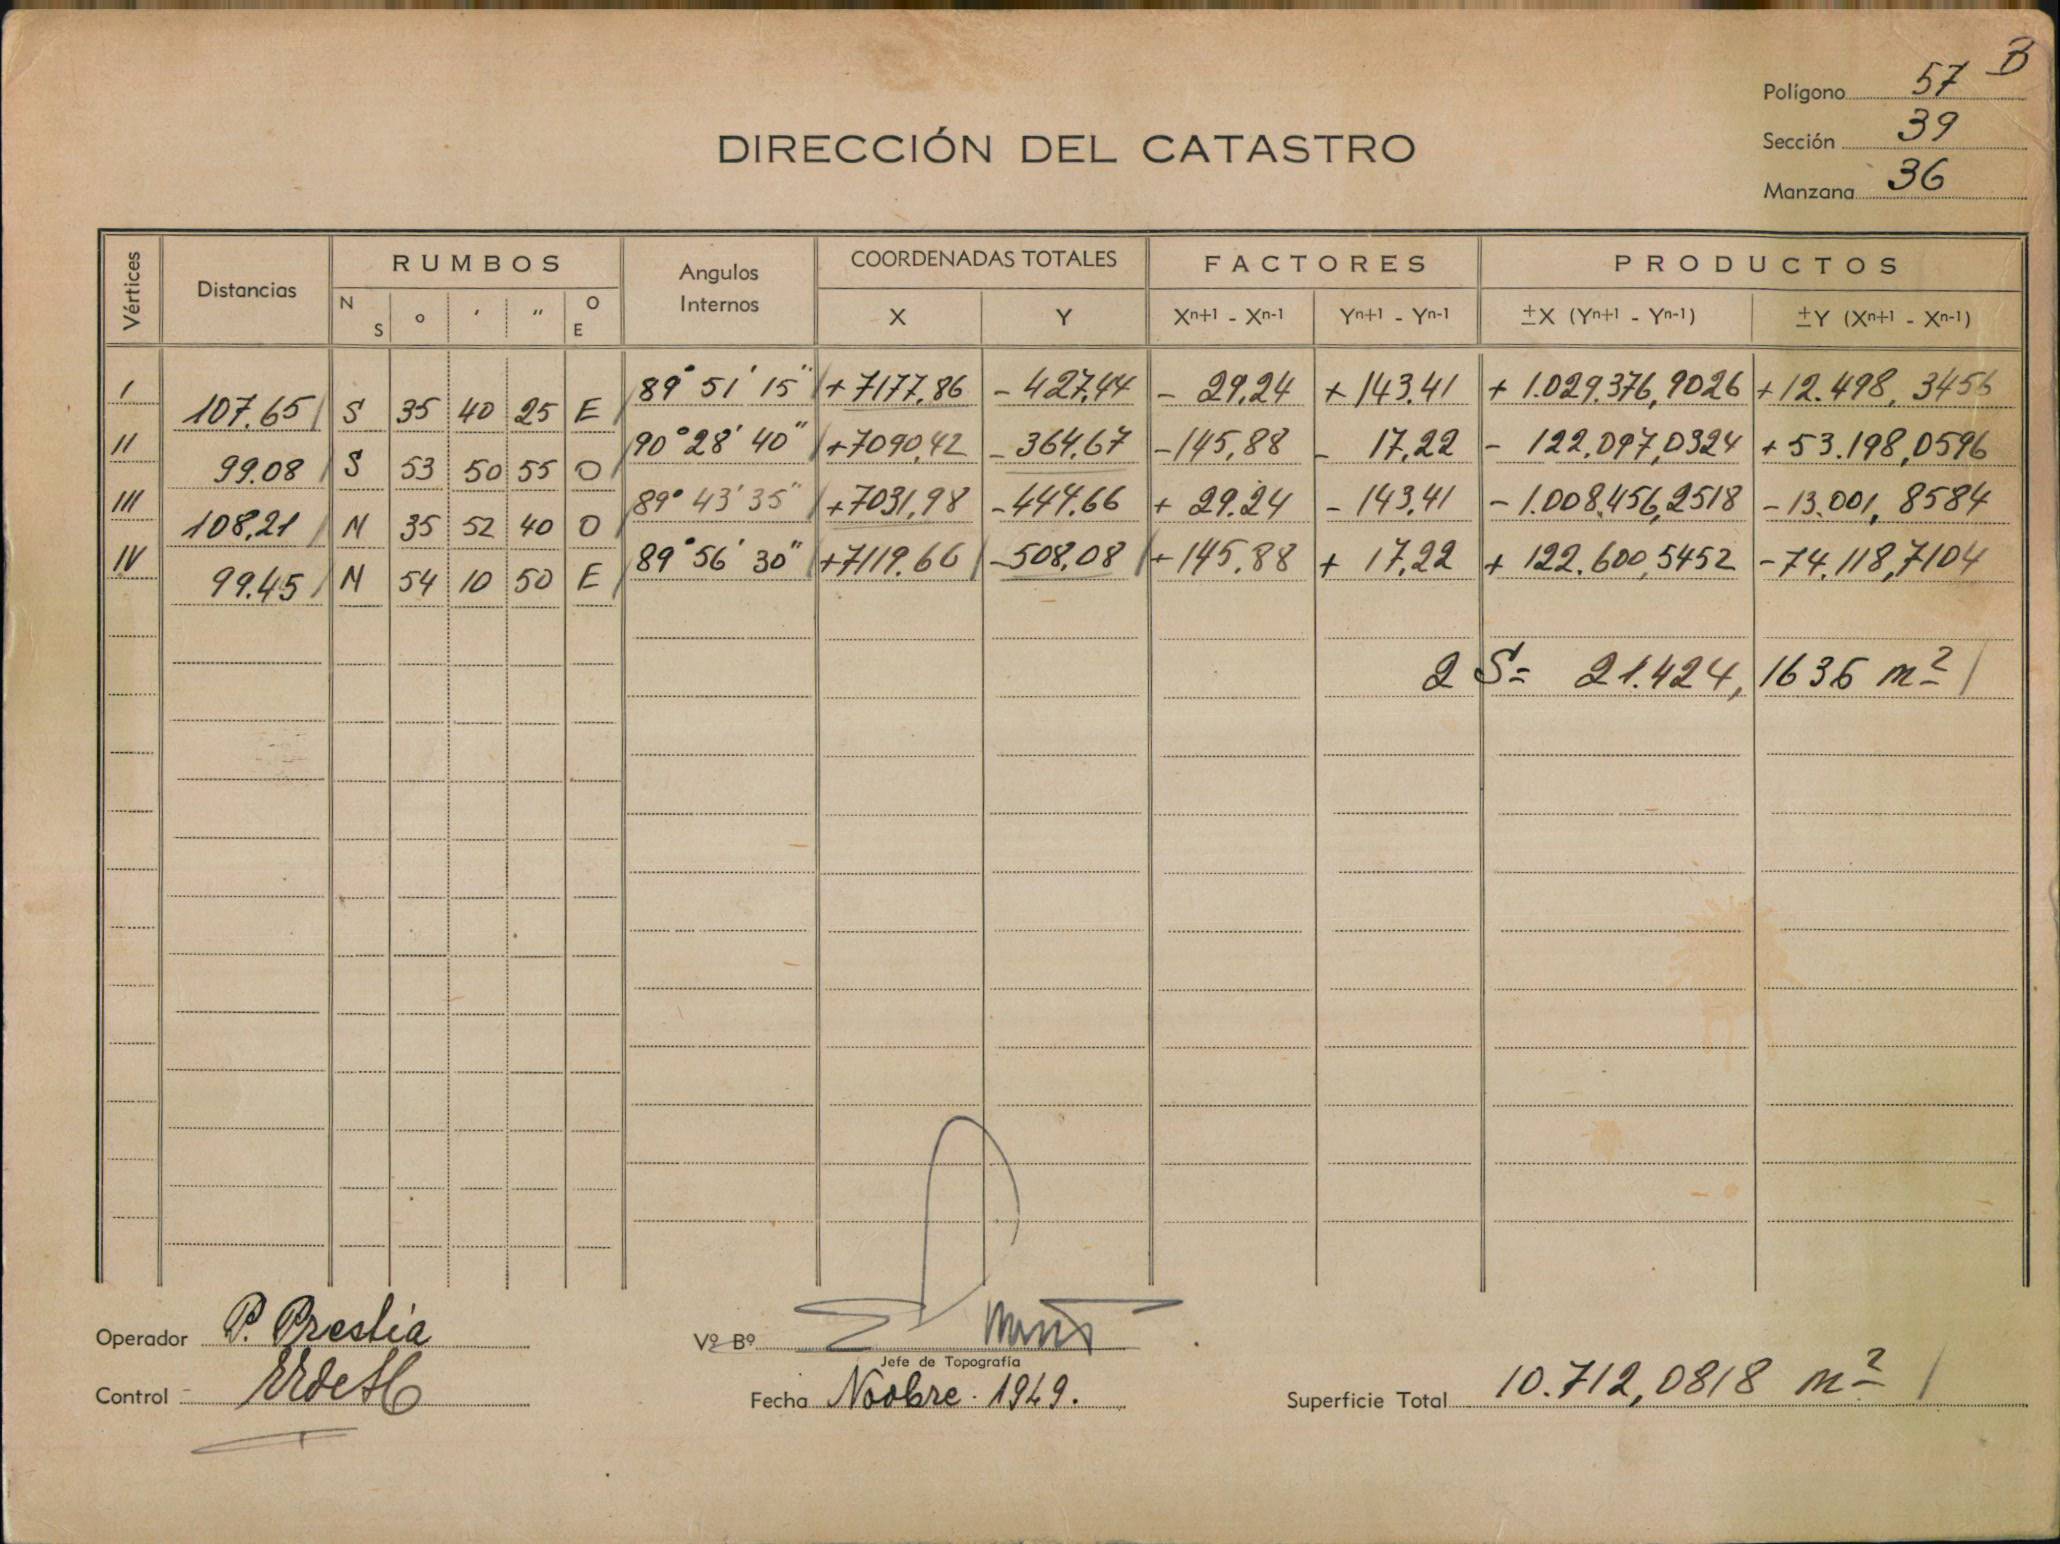 B
Polígono 57
Sección 39
Manzana 36
DIRECCIÓN DEL CATASTRO
Vértices Distancias RUMBOS Angulos Internos COORDENADAS TOTALES FACTORES PRODUCTOS
N S ° ′ ″ O E X Y Xⁿ⁺¹ - Xⁿ⁻¹ Yⁿ⁺¹ - Yⁿ⁻¹ ±X (Yⁿ⁺¹ - Yⁿ⁻¹) ±Y (Xⁿ⁺¹ - Xⁿ⁻¹)
I 89° 51' 15" +7177,86 -427,44 -29,24 +143,41 +1.029.376,9026 +12.498,3456
107.65 S 35 40 25 E
II 90° 28' 40" +7090,42 -364,67 -145,88 -17,22 -122.097,0324 +53.198,0596
99.08 S 53 50 55 O
III 89° 43' 35" +7031,98 -444,66 +29.24 -143,41 -1.008.456,2518 -13.001,8584
108,21 N 35 52 40 O
IV 89° 56' 30" +7119.66 -508,08 +145,88 +17,22 +122.600,5452 -74.118,7104
99.45 N 54 10 50 E
2 S = 21.424,1636 m²
Operador P. Prestia
Vº Bº
Jefe de Topografía
Control
Fecha Novbre. 1949.
Superficie Total 10.712,0818 m²